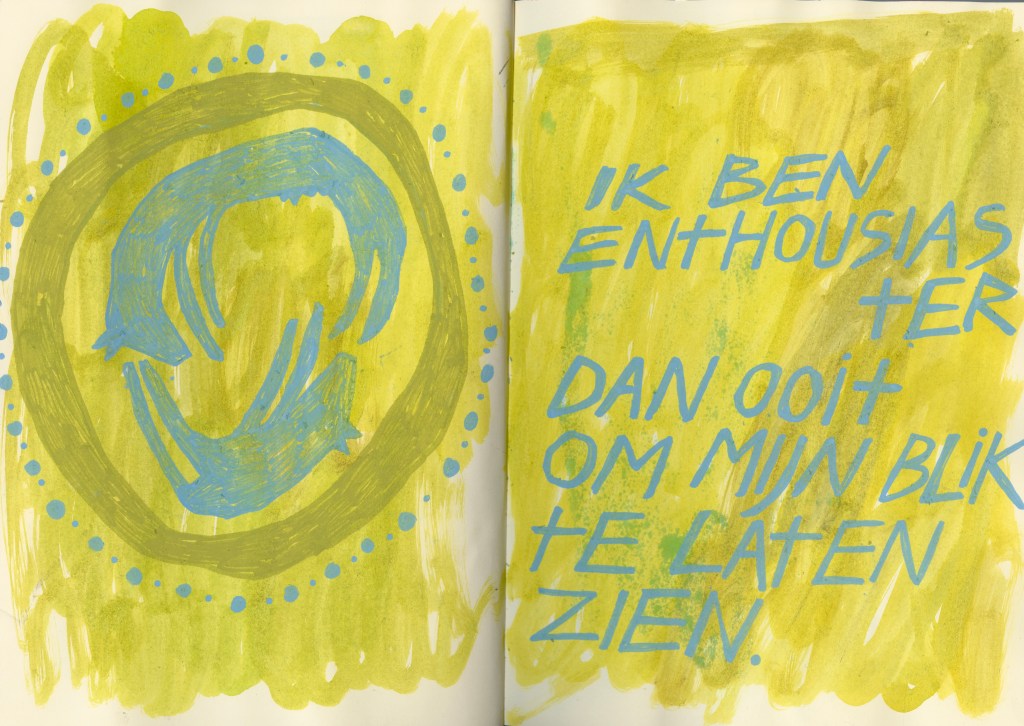 IK BEN
ENTHOUSIAS
TER
DAN OOIT
OM MIJN BLIK
TE LATEN
ZIEN.